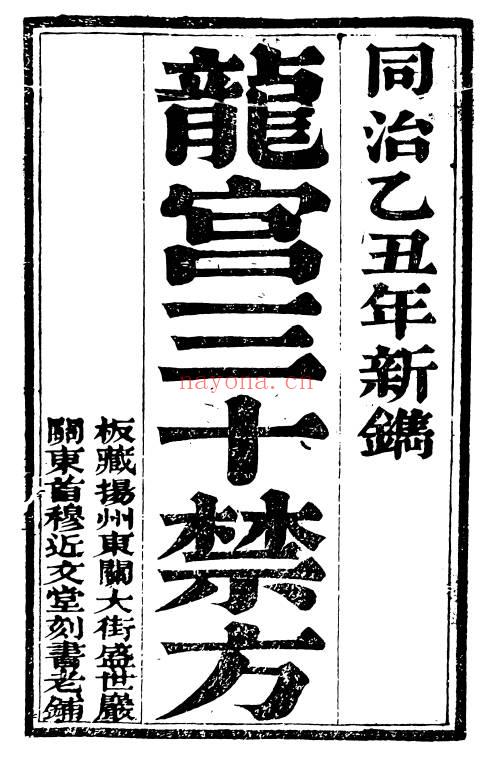 同治乙丑年新鐫
龍宮三十禁方
板藏揚州東關大街盛世巖
關東首穆近文堂刻書老鋪
nayona.cn